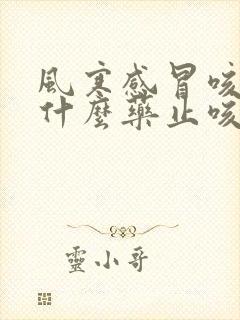 風寒感冒咳
什麼藥止咳
靈小哥